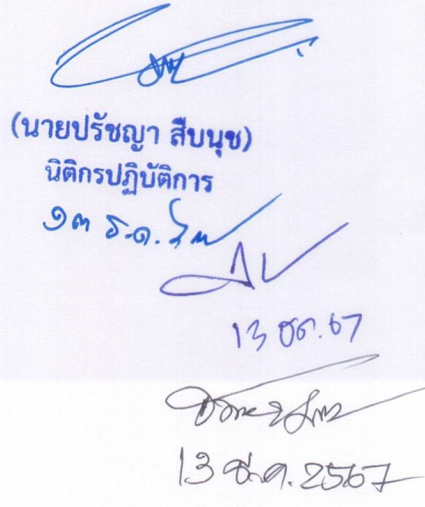 (นายปรัชญา สืบนุช)
นิติกรปฏิบัติการ
๑๓ ธ.ค. ๖๗
13 ธค. 67
13 ธ.ค. 2567